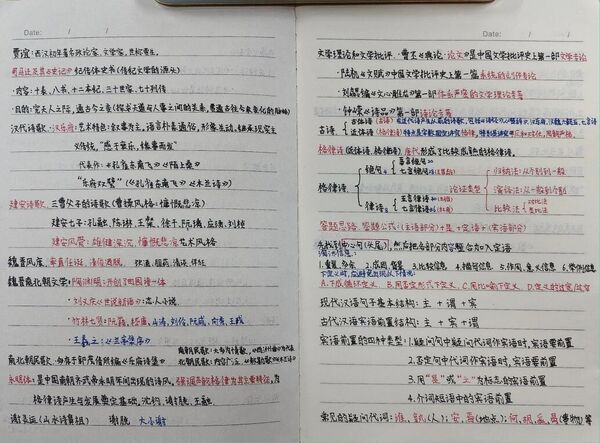 Date: / /
贾谊:西汉初年著名政论家、文学家,世称贾生。
司马迁及其《史记》纪传体史书(传纪文学的源头)
·内容:十表、八书、十二本纪、三十世家、七十列传
·目的:究天人之际,通古今之变
汉代诗歌.汉乐府:艺术特色:叙事为主,语言朴素通俗,形象生动,
"感于哀乐,缘事而发"
代表作:《孔雀东南飞》《陌上桑》
"乐府双璧"(《孔雀东南飞》《木兰诗》)
建安诗歌.三曹父子的诗歌(曹操风格:慷慨悲凉)
建安七子:孔融、陈琳、王粲、徐干、阮瑀、应玚、刘桢
建安风骨:雄健深沉、慷慨悲凉艺术风格
魏晋风度.率直任诞、清俊洒脱.
魏晋南北朝文学:陶渊明:开创了田园诗一体
·刘义庆《世说新语》:志人小说
·竹林七贤:阮籍、嵇康、山涛、刘伶、阮咸、向秀、王戎
·王羲之:《兰亭集序》
南北朝民歌.
永明体:是中国南朝齐武帝永明年间出现的诗风.强调声韵格律
格律诗产生与发展奠定基础,沈约、谢朓、王融
谢灵运(山水诗鼻祖) 谢朓 大小谢
Date: / /
文学理论和文学批评.曹丕《典论·论文》是中国文学批评史上第一部文学专论
·陆机《文赋》中国文学批评史上第一篇系统的创作专论
·刘勰编《文心雕龙》第一部体系严密的文学理论专著
·钟嵘《诗品》第一部诗论专著
古诗
格律诗(近体诗、格律诗).唐代形成了比较成熟的格律诗.
格律诗
绝句
五言绝句
七言绝句
律诗
五言律诗
七言律诗
论证类型
归纳法:从个别到一般
演绎法:从一般到个别
比较法
答题思路.答题公式:(主语部分)+是+定语+(宾语部分)
先找到中心句(头尾),然后把各部分内容整合加入定语
下定义时,应避免出现以下情况:
A.下成循环定义 B.用否定形式下定义 C.用比喻下定义 D.定义的过宽/过窄
现代汉语句子基本结构:主+谓+宾
古代汉语宾语前置结构:主+宾+谓
宾语前置的四种类型:1.疑问句中疑问代词作宾语时,宾语要前置
2.否定句中代词作宾语时,宾语要前置
3.用"是"或"之"为标志的宾语前置
4.介词短语中的宾语前置
常见的疑问代词:谁、孰(人);安、焉(地点);何、胡、奚、曷(事物)等